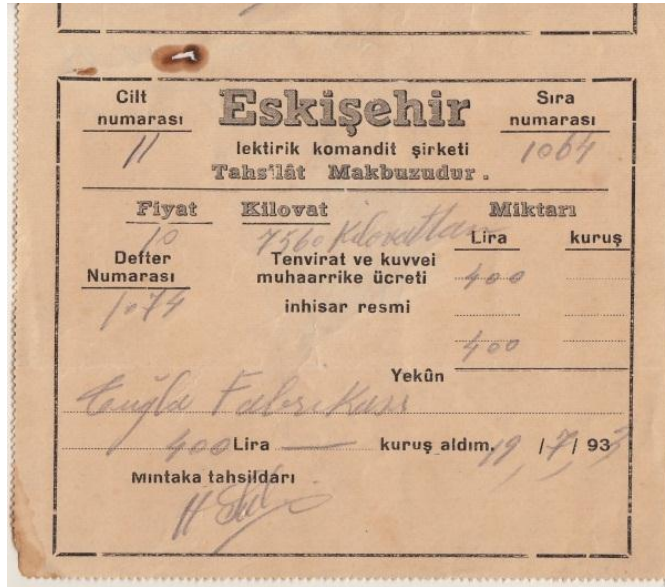 Cilt numarası
11
Eskişehir
Sıra numarası
1064
lektirik komandit şirketi
Tahsilât Makbuzudur.
Fiyat Kilovat Miktarı
10 7560 Kilovattan
Lira kuruş
Defter Numarası
1074
Tenvirat ve kuvvei muhaarrike ücreti
400
inhisar resmi
400
Yekûn
Tuğla Fabrikası
400 Lira — kuruş aldım. 19 / 7 / 933
Mıntaka tahsildarı